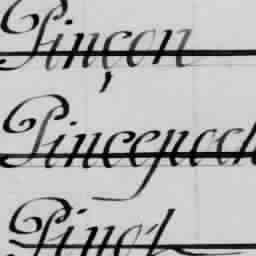 Pinçon
Pincepoch
Pinot